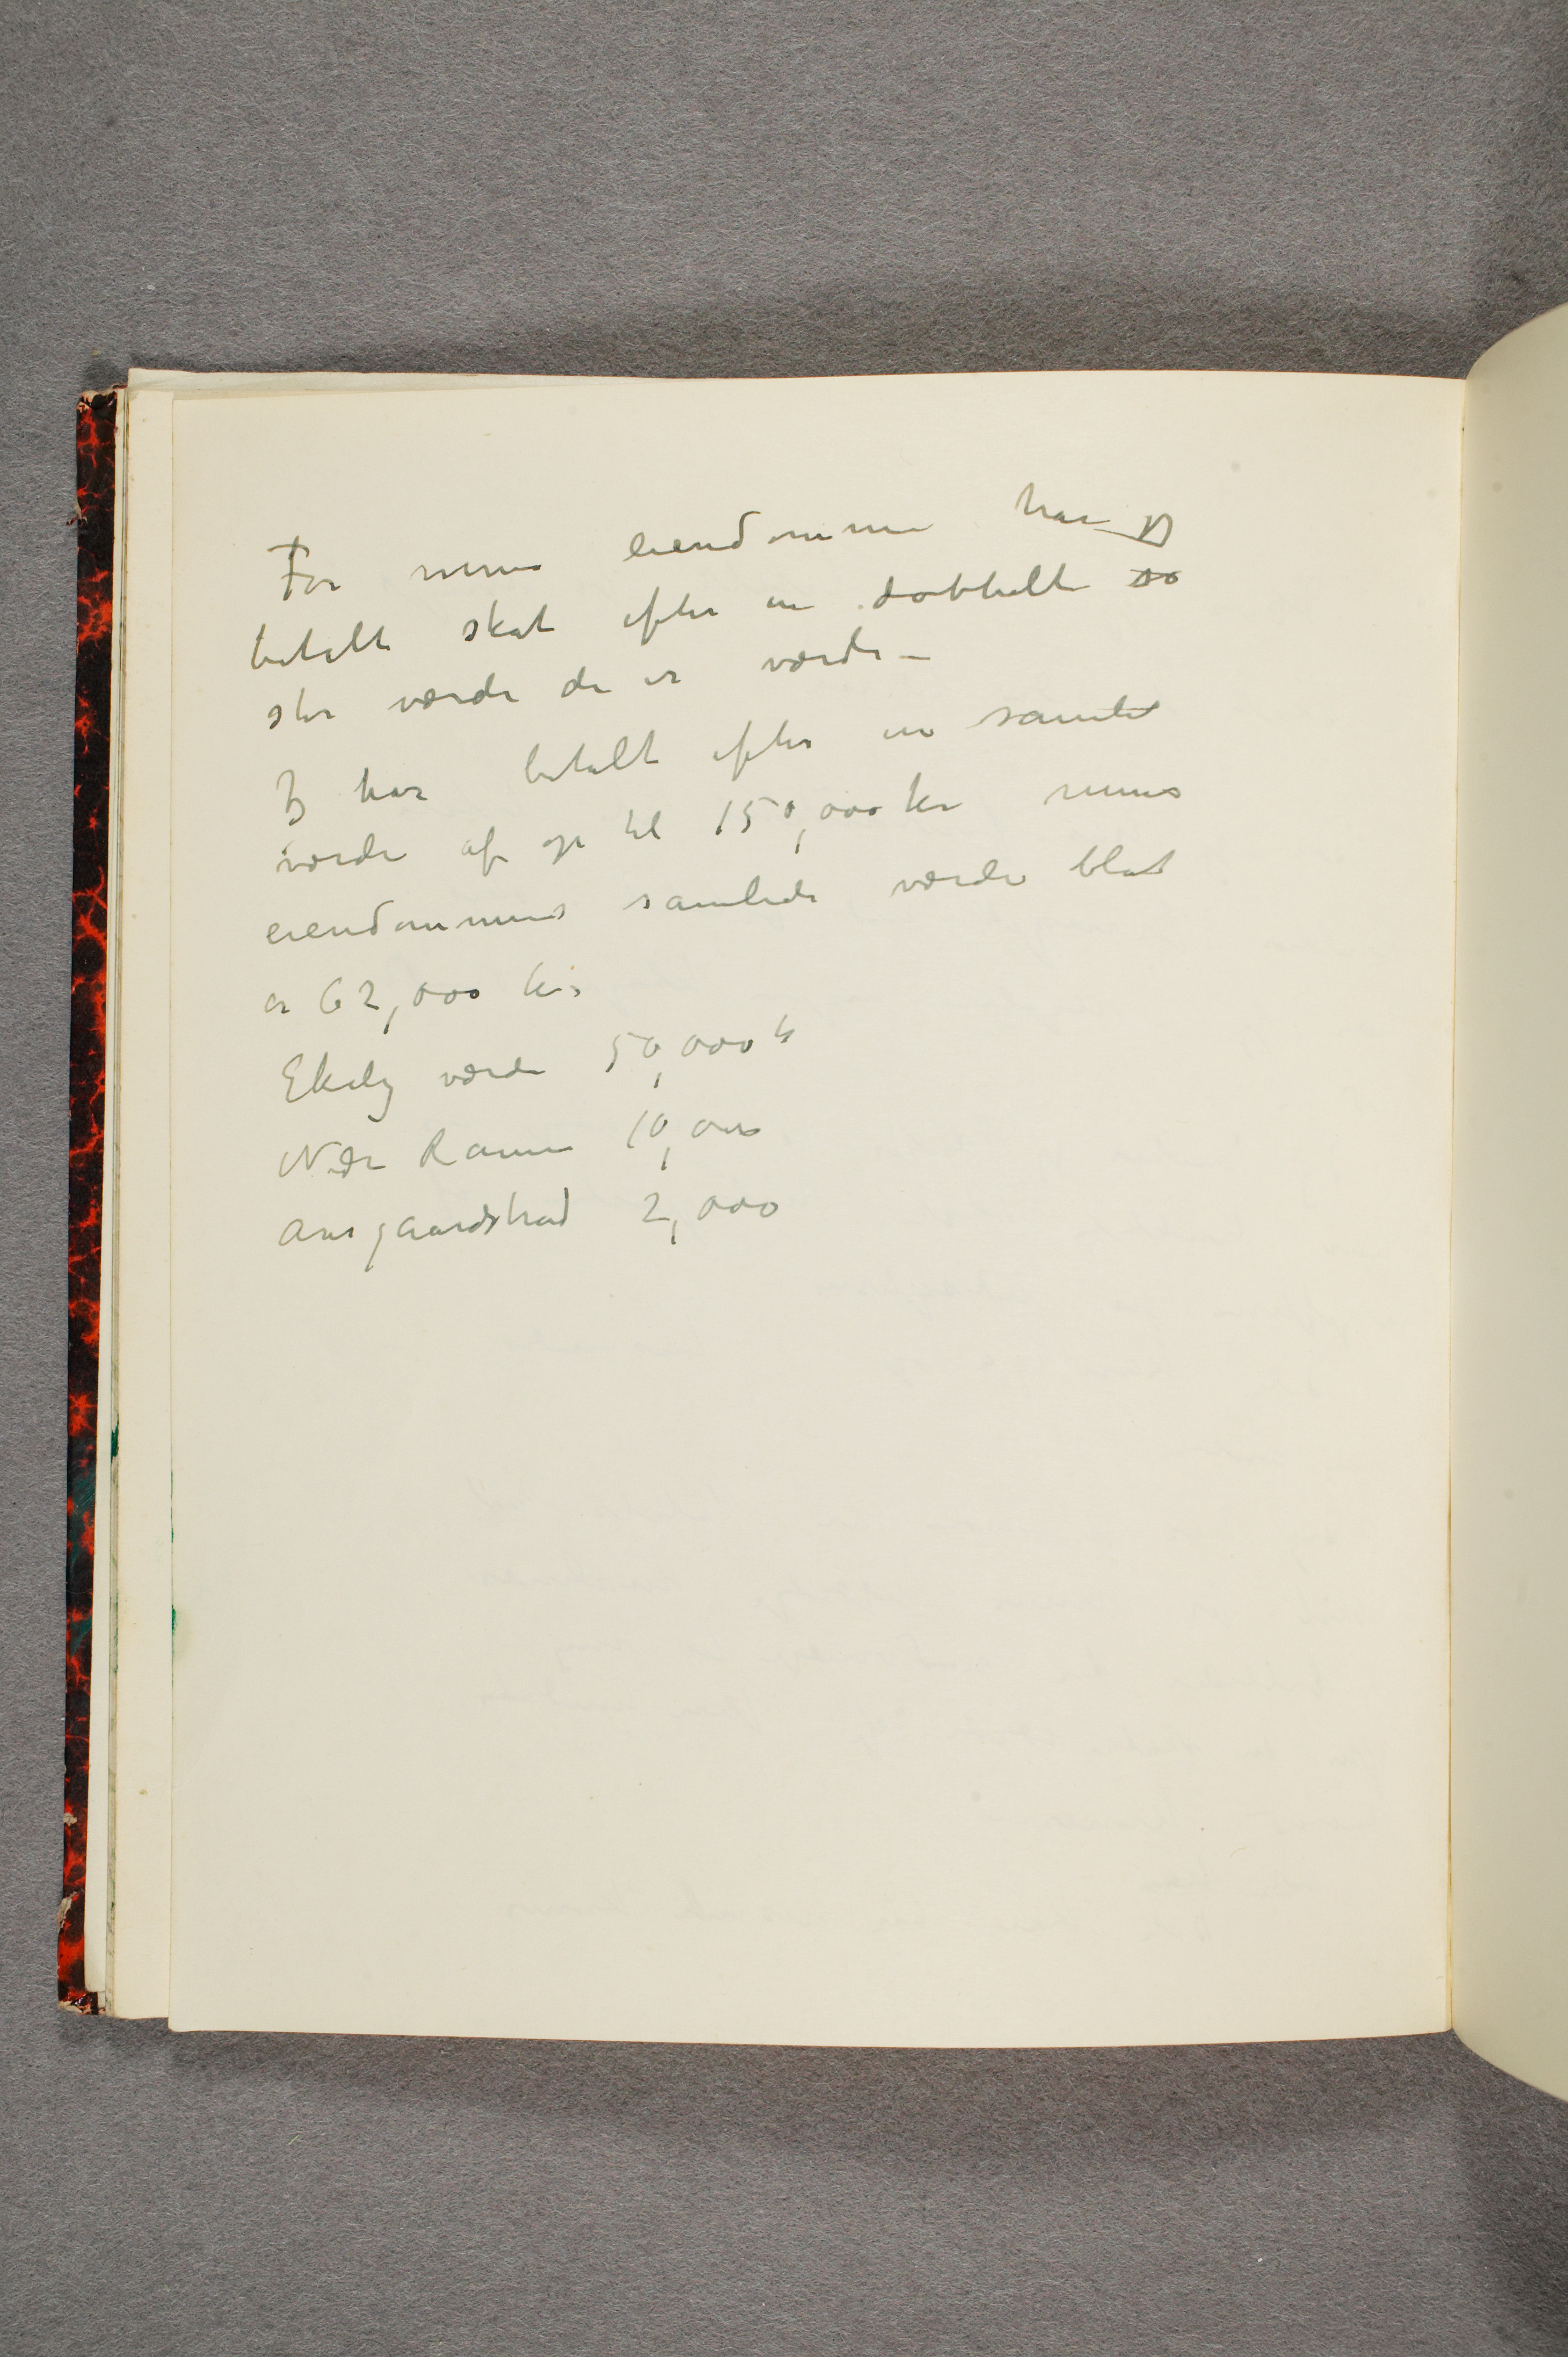 For mine eiendomme har jeg
betalt skat efter en dobbelt so
stor værdi de er værdi –
Jeg har betalt efter en samlet
værdi af op til 150,000 kr mens
eiendommens samlede værdi blot
er 62,000 kr.
Ekely værdi 50,000 kr
Nedr Ramm 10,000
Aasgaardstrad 2,000